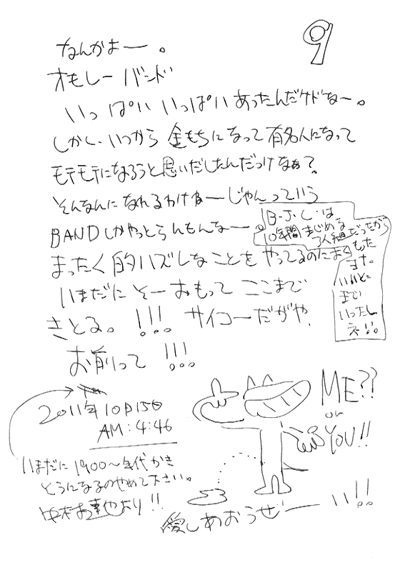 9
なんかよー。
オモしれーバンド
いっぱい いっぱい あったんだケドなー。
しかし、いつから 金もちになって 有名人になって
モテモテになろうと思いだしたんだっけなぁ?
そんなんに なれるわけねーじゃんっていう
BANDしかやっとらんもんなー。
B・J・C・は
10年間まじめな
3人組だったが
まったく 的ハズレなことを やってるのにまたもた
ます。
いいとこ
まで
いったし
ネ!!。
いまだに そーおもって ここまで
きとる。!!! サイコーだがや。
お前って !!!
2011年10月15日
AM:4:46
いまだに1900〜年代かき
とうになるのやめて下さい。
より!!
ME??
or
YOU!!
愛しあおうぜーい!!